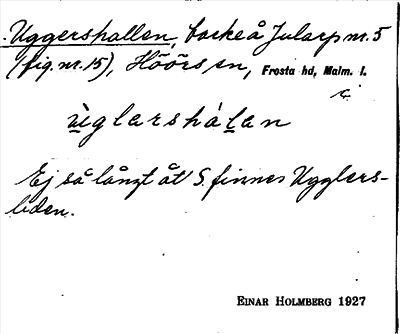 Uggershallen, backe å Jularp nr. 5
(fig. nr. 15), Höörs sn, Frosta hd, Malm. l.
ùglershàlan
Ej så långt åt S. finnes Ugglers-
liden.
EINAR HOLMBERG 1927